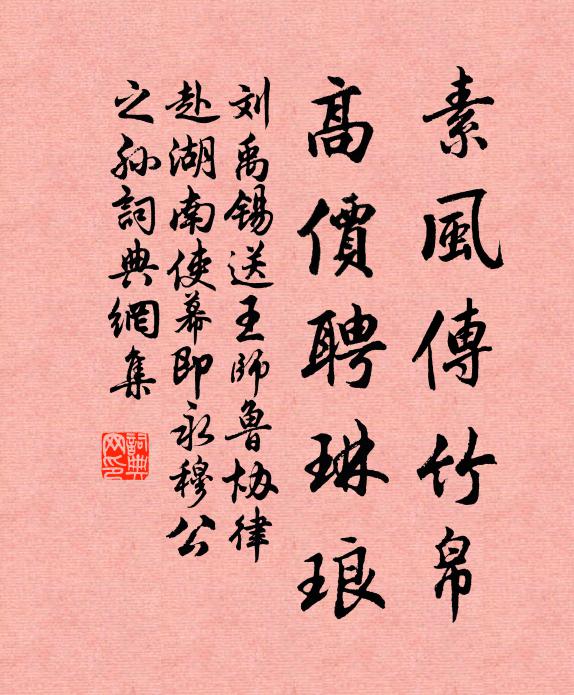 素風傳竹帛
高價聘琳琅
刘禹锡送王师鲁协律
赴湖南使幕即永穆公
之孙詞典網集
詞典
网印